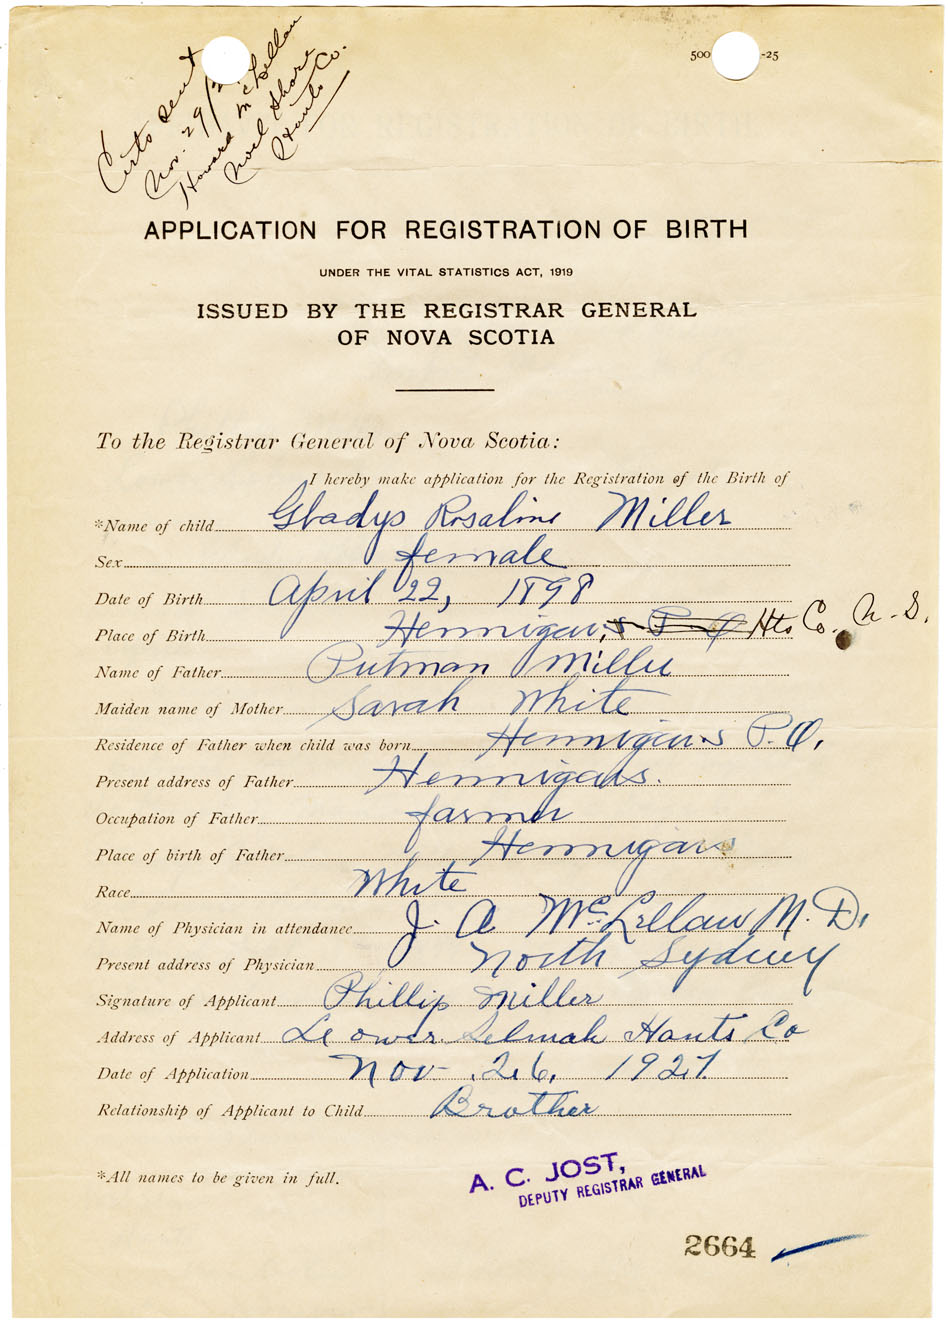 Certs sent
Nov. 29/2
Howard McLellan
Noel Shore
Hants Co.
500 -25
APPLICATION FOR REGISTRATION OF BIRTH
UNDER THE VITAL STATISTICS ACT, 1919
ISSUED BY THE REGISTRAR GENERAL
OF NOVA SCOTIA
To the Registrar General of Nova Scotia:
I hereby make application for the Registration of the Birth of
*Name of child Gladys Rosaline Miller
Sex female
Date of Birth April 22, 1898
Place of Birth Hennigar's P. O Hts Co. N. S.
Name of Father Putman Miller
Maiden name of Mother Sarah White
Residence of Father when child was born Hennigar's P.O.
Present address of Father Hennigars.
Occupation of Father farmer
Place of birth of Father Hennigars
Race White
Name of Physician in attendance J. A McLellan M. D.
Present address of Physician North Sydney
Signature of Applicant Phillip Miller
Address of Applicant Lower Selmah Hants Co
Date of Application Nov- 26, 1927.
Relationship of Applicant to Child Brother
*All names to be given in full.
A. C. JOST,
DEPUTY REGISTRAR GENERAL
2664